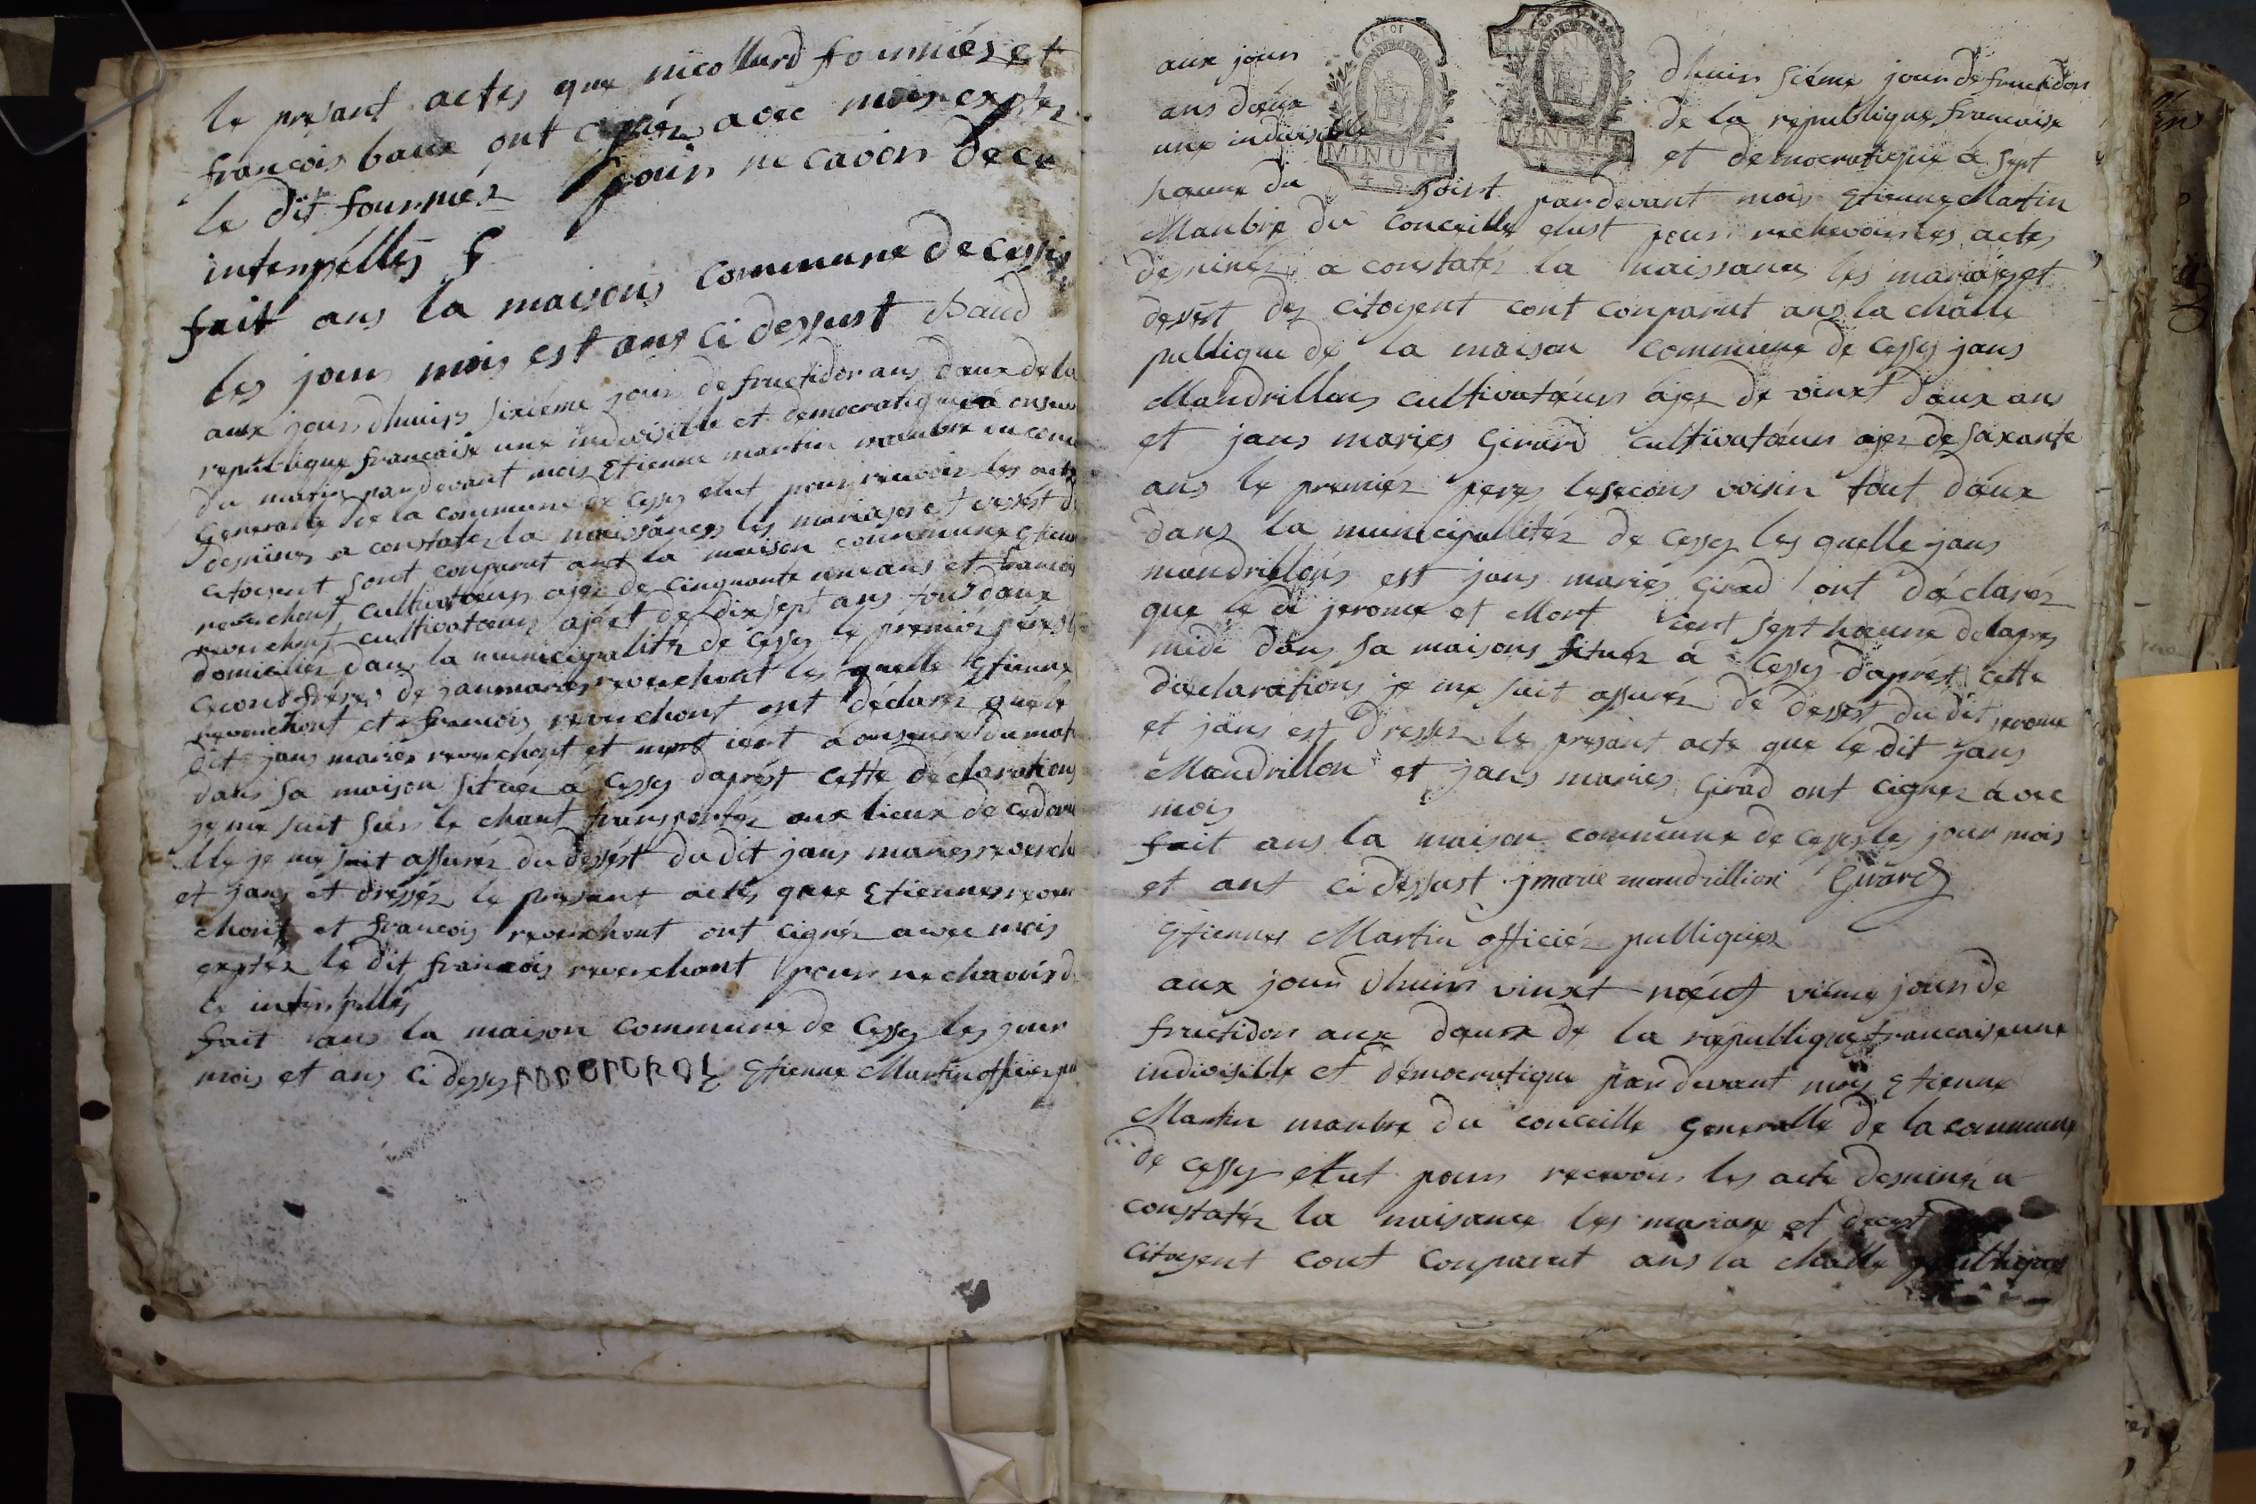 le presant actes que nicollard fourniés et
francois baux ont cignéz avec mois exptez
le dit fourniéz pour ne cavoir de ce
interpélles
fait ans la maisons commune de cessis
les jour mois est ans ci dessust Baud
aux jour dhuiss sixiéme jour de fructidor ans daux de la
republique francaise une indivisible et democratique a onseur
du matin pardevant mois Etienne martin manbre du cons
generalle de la commune de cessy elut pour recevoir les acte
desines a constatez la naissances les mariages et dessést d
citoient sont conparut ans la maison commune Etienne
reverchont cultivatœur ajez de cinquante un ans et francois
reverchont cultivatœur ajéet de dix sept ans tous daux
domicilies dans la municipalitéz de cessy le premiér péres le
cecont fréres de jan maries reverchont les quelle Etienne
reverchont et francois reverchont ont déclarez que le
dit jans mariés reverchont et mort iert a onseure du mat
dans sa maison situéz a cessy daprést cette declarations
je me suit sur le chant transportéz aux lieux de ce dom
ille je me suit assuréz du dessést du dit jans maries reverch
et jans et dresséz le presant actes que Etiennes rever
chont et francois reverchont ont cignéz avec mois
exptéz le dit francois reverchont pour ne chavoir d
ce interpélles
fait ans la maison commune de cessy les jour
mois et ans ci desses Etienne Martin officier pu
aux jour dhuis siéme jour de fructidor
ans daux de la republique francaise
une indivisible et democratique a sept
heure du soirt pardevant mois Etienne Martin
Manbre du conceille elust pour rechevoir les actes
desinéz a constatéz la naissance les mariages et
dessést des citoyent cont conparut ans la challe
publique de la maison commune de cessy jans
Mandrillons cultivatœurs ajez de vinxt daux ans
et jans maries Girard cultivatœur ajez de soixante
ans le premiéz peres le secons voisin tout daux
dans la municipallitéz de cessy les quelle jans
mandrillons est jans mariés Girad ont déclaréz
que le di jerome et Mort iert sept heure de lapres
midi dans sa maisons situéz á Cessy daprést cette
déclarations je me suit assuréz de dessést du dit jerome
et jans est dressez le presant acte que le dit jans
Mandrillon et jans maries Girad ont cignez avec
mois
fait ans la maison commune de cessy les jour mois
et ant ci dessust jmarie mandrillion Girard
Etienne Martin officiéz publiquez
aux jour dhuis vinxt nœuf viéme jour de
fructidor aux daux de la republique francaise une
indivisible et démocratique pardevant moy Etienne
Martin manbre du conceille generalle de la commune
de cessy elut pour recevoir les acte desinéz a
constatéz la naisance les mariaxe et decest
citoyent cont conparut ans la challe publique
MINUTE
MINUTE